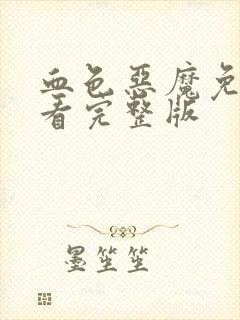 血色恶魔免
看完整版
墨笙笙